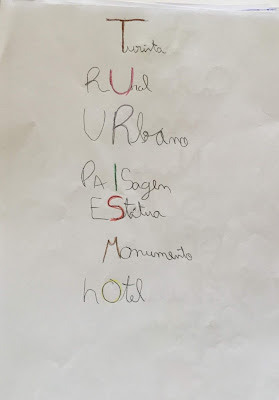 Turista
RUral
URbano
PAISagen
EStátua
Monumento
hOtel